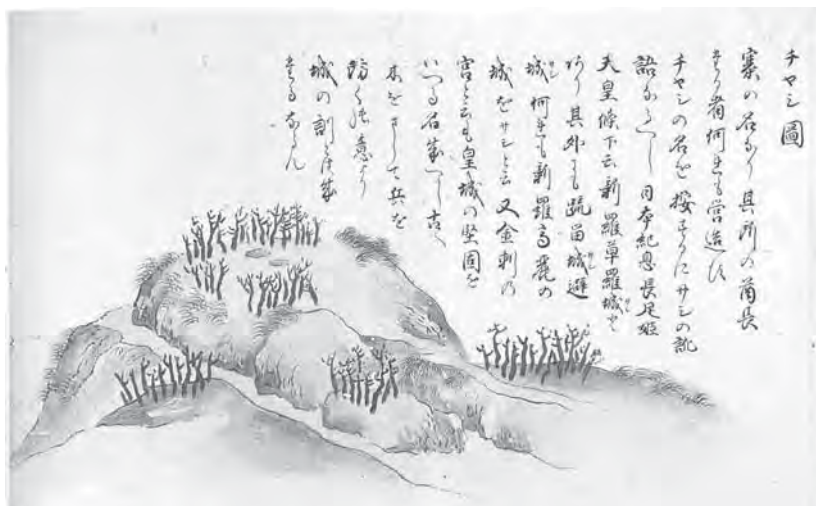 チヤシ圖
寨の名なり其所の酋長
たる者何れも営造す
チヤシの名を按するにサシの訛
語なるへし日本紀息長足姫
天皇條下云新羅草羅城と
あり其外にも䟽留城避
城何れも新羅高麗の
城をサシと云又金刺の
宮と云も皇城の堅固を
いへる名成へし古へ
木をさして兵を
防く意より
城の訓とは成
たるならん